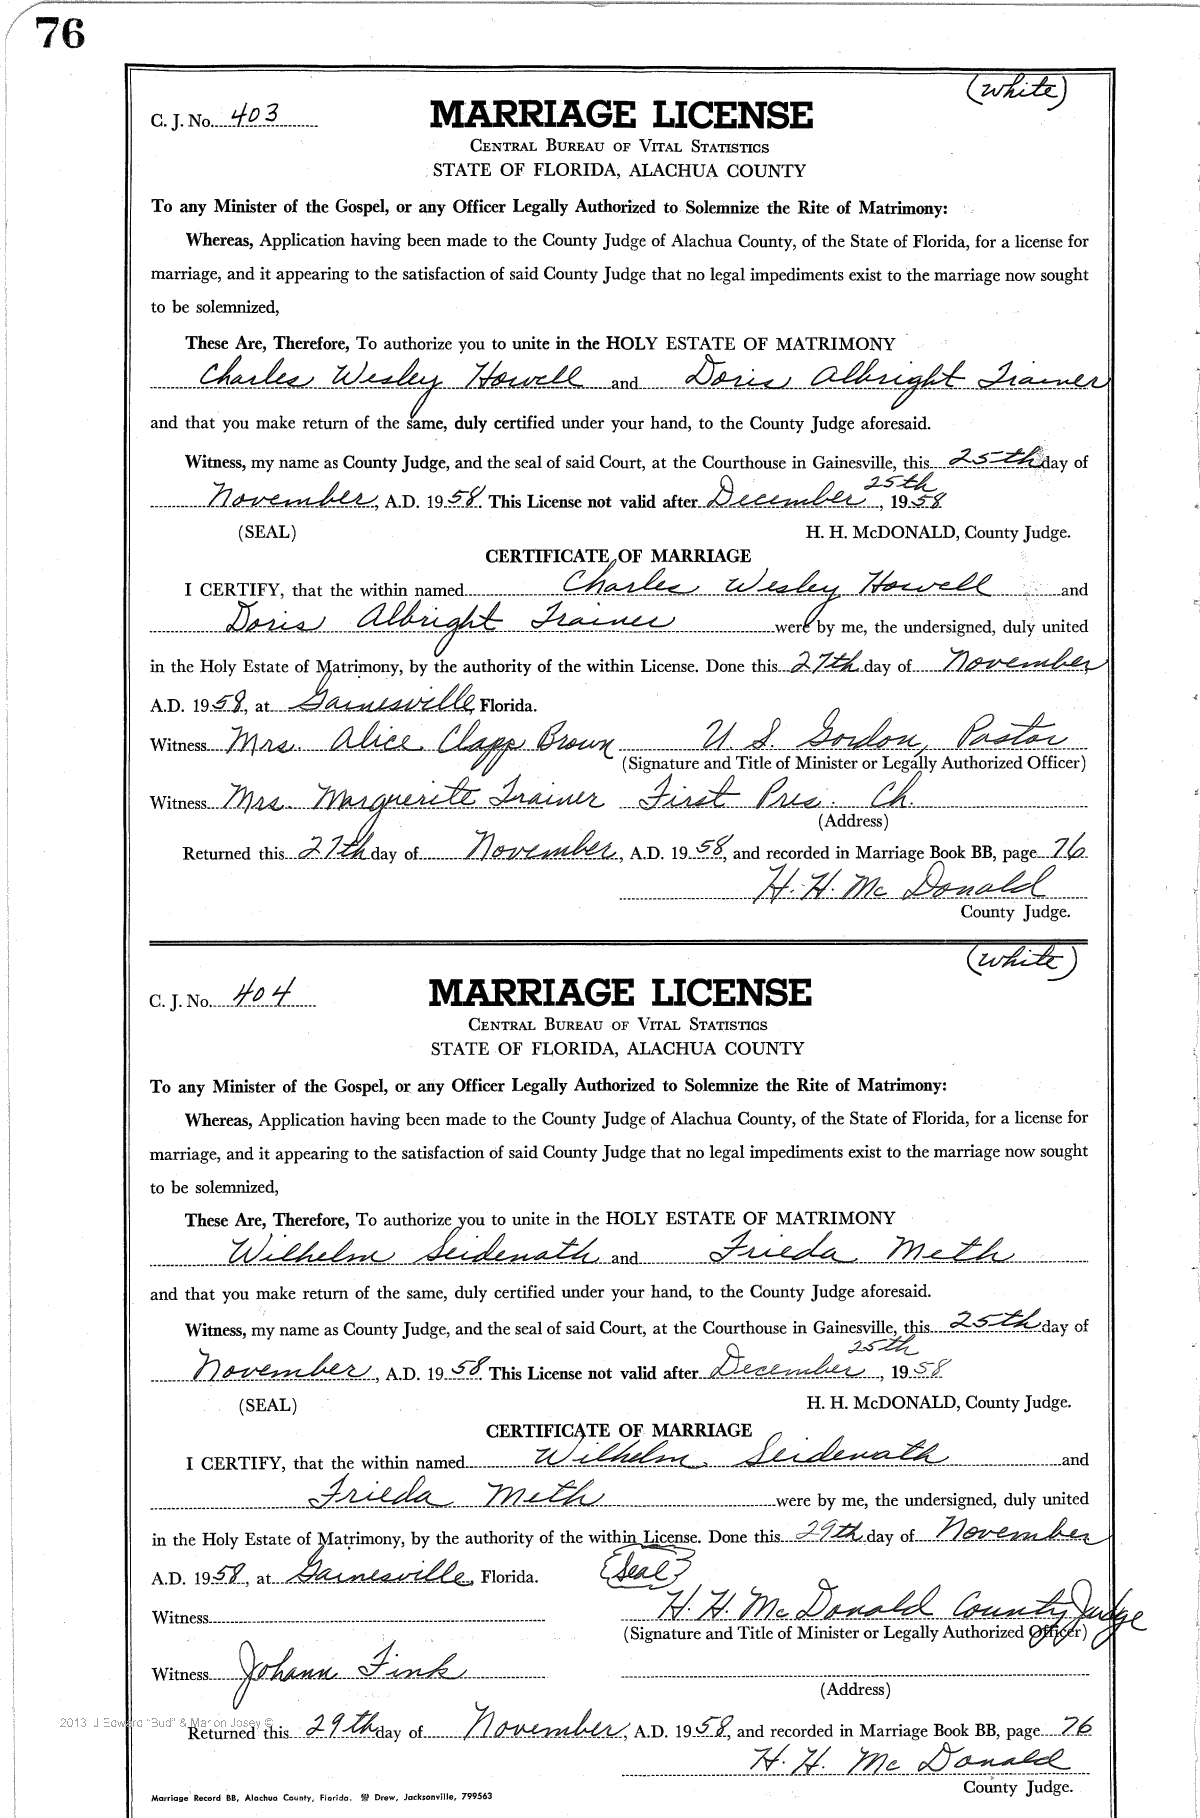 76
(white)
C. J. No. 403
MARRIAGE LICENSE
CENTRAL BUREAU OF VITAL STATISTICS
STATE OF FLORIDA, ALACHUA COUNTY
To any Minister of the Gospel, or any Officer Legally Authorized to Solemnize the Rite of Matrimony:
Whereas, Application having been made to the County Judge of Alachua County, of the State of Florida, for a license for
marriage, and it appearing to the satisfaction of said County Judge that no legal impediments exist to the marriage now sought
to be solemnized,
These Are, Therefore, To authorize you to unite in the HOLY ESTATE OF MATRIMONY
Charles Wesley Howell and Doris Albright Trainer
and that you make return of the same, duly certified under your hand, to the County Judge aforesaid.
Witness, my name as County Judge, and the seal of said Court, at the Courthouse in Gainesville, this 25th day of
November, A.D. 1958. This License not valid after December 25th, 1958
(SEAL) H. H. McDONALD, County Judge.
CERTIFICATE OF MARRIAGE
I CERTIFY, that the within named Charles Wesley Howell and
Doris Albright Trainer were by me, the undersigned, duly united
in the Holy Estate of Matrimony, by the authority of the within License. Done this 27th day of November
A.D. 1958, at Gainesville, Florida.
Witness Mrs. Alice Clapp Brown U. S. Gordon, Pastor
(Signature and Title of Minister or Legally Authorized Officer)
Witness Mrs. Marguerite Trainer First Pres. Ch.
(Address)
Returned this 27th day of November, A.D. 1958, and recorded in Marriage Book BB, page 76
H. H. McDonald
County Judge.
(white)
C. J. No. 404
MARRIAGE LICENSE
CENTRAL BUREAU OF VITAL STATISTICS
STATE OF FLORIDA, ALACHUA COUNTY
To any Minister of the Gospel, or any Officer Legally Authorized to Solemnize the Rite of Matrimony:
Whereas, Application having been made to the County Judge of Alachua County, of the State of Florida, for a license for
marriage, and it appearing to the satisfaction of said County Judge that no legal impediments exist to the marriage now sought
to be solemnized,
These Are, Therefore, To authorize you to unite in the HOLY ESTATE OF MATRIMONY
Wilhelm Seidenath and Frieda Meth
and that you make return of the same, duly certified under your hand, to the County Judge aforesaid.
Witness, my name as County Judge, and the seal of said Court, at the Courthouse in Gainesville, this 25th day of
November, A.D. 1958. This License not valid after December 25th, 1958
(SEAL) H. H. McDONALD, County Judge.
CERTIFICATE OF MARRIAGE
I CERTIFY, that the within named Wilhelm Seidenath and
Frieda Meth were by me, the undersigned, duly united
in the Holy Estate of Matrimony, by the authority of the within License. Done this 29th day of November
A.D. 1958, at Gainesville, Florida. (Seal)
Witness H. H. McDonald County Judge
(Signature and Title of Minister or Legally Authorized Officer)
Witness Johann Fink
(Address)
2013 J Edward "Bud" & Marion Josey ©
Returned this 29th day of November, A.D. 1958, and recorded in Marriage Book BB, page 76
H. H. McDonald
County Judge.
Marriage Record BB, Alachua County, Florida. Drew, Jacksonville, 799563